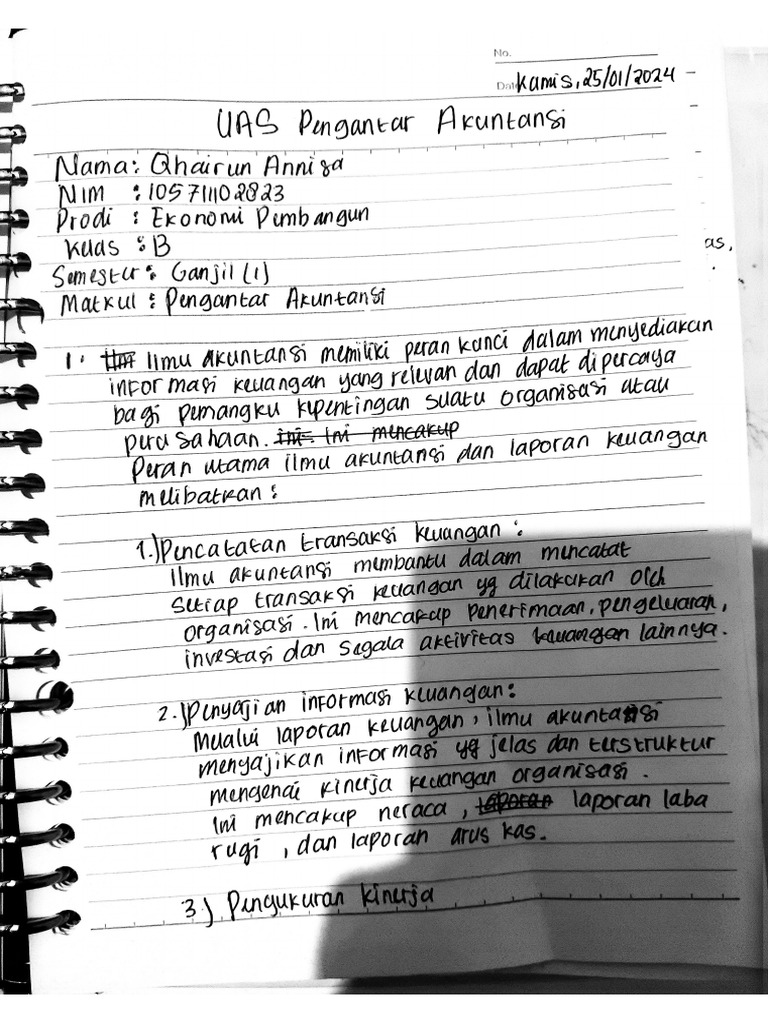 No.
Date Kamis, 25/01/2024
UAS Pengantar Akuntansi
Nama: Qhairun Annisa
NIM : 105711102823
Prodi : Ekonomi Pembangun
Kelas : B
Semester : Ganjil (1)
Matkul : Pengantar Akuntansi
1. Ilmu akuntansi memiliki peran kunci dalam menyediakan
informasi keuangan yang relevan dan dapat dipercaya
bagi pemangku kepentingan suatu organisasi atau
perusahaan. ini. Ini mencakup
Peran utama ilmu akuntansi dan laporan keuangan
melibatkan :
1.) Pencatatan transaksi keuangan :
Ilmu akuntansi membantu dalam mencatat
setiap transaksi keuangan yg dilakukan oleh
organisasi. Ini mencakup penerimaan, pengeluaran,
investasi dan segala aktivitas keuangan lainnya.
2.) Penyajian informasi keuangan :
Melalui laporan keuangan, ilmu akuntansi
menyajikan informasi yg jelas dan terstruktur
mengenai kinerja keuangan organisasi.
Ini mencakup neraca, laporan laporan laba
rugi, dan laporan arus kas.
3.) Pengukuran kinerja
as,